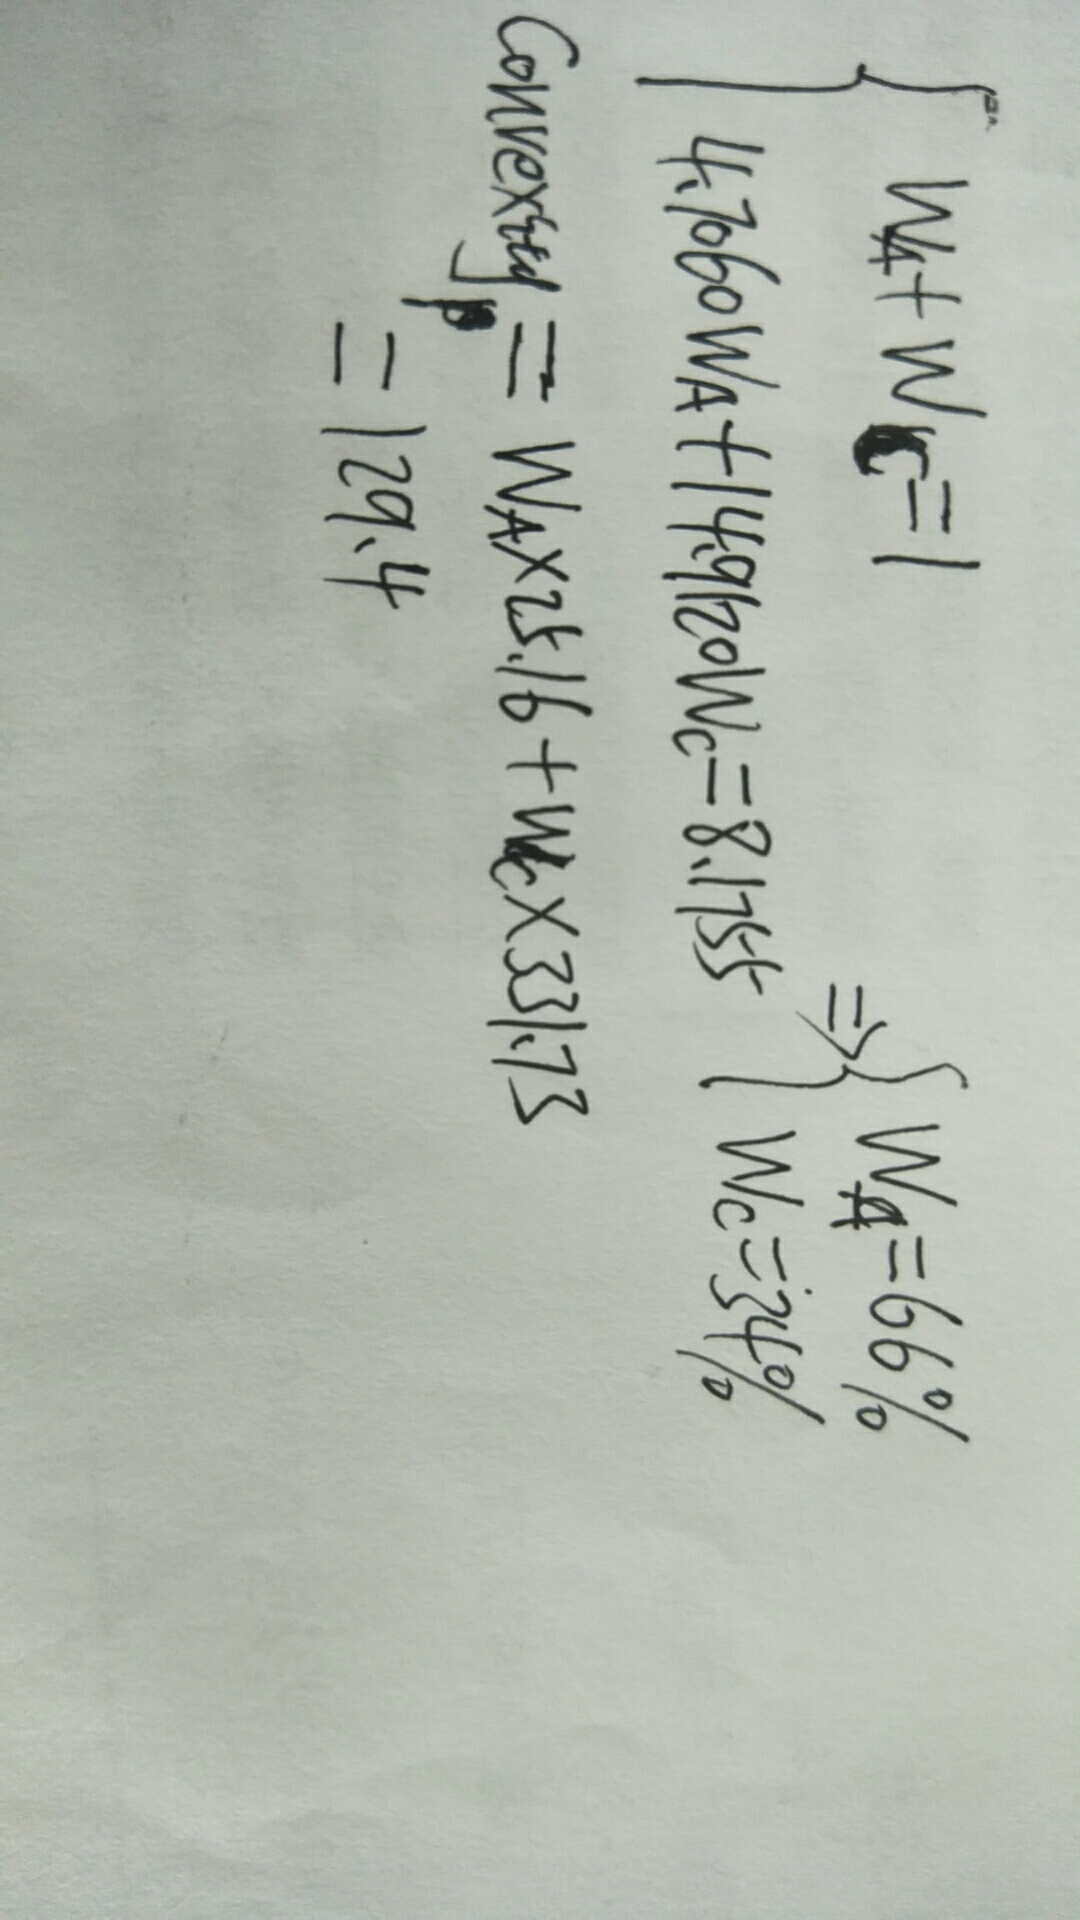 W_A + W_C = 1
4.7060W_A + 14.9120W_C = 8.1755
⇒ { W_A = 66%
W_C = 34%
Convexity_p = W_A × 25.16 + W_C × 331.73
= 129.4